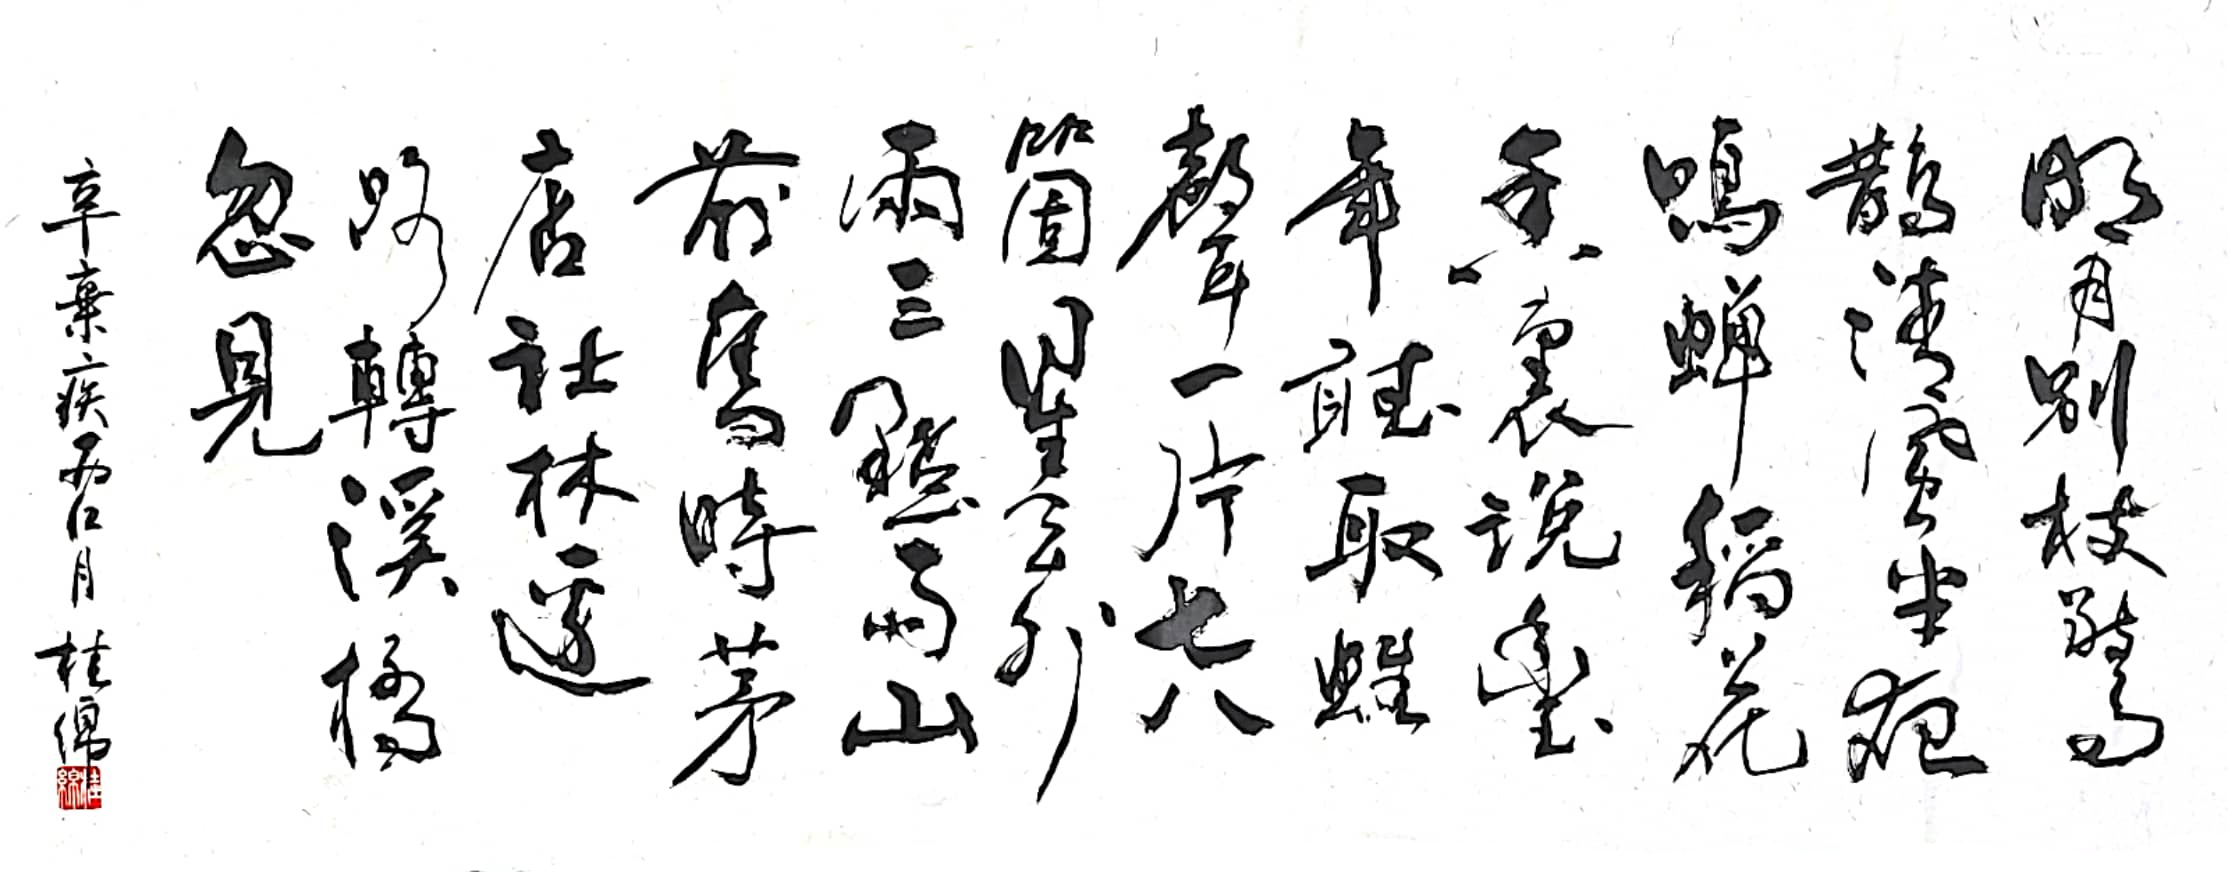 明月别枝驚
鹊清風半夜
鳴蝉稻花
香裏説豐
年聽取蛙
聲一片七八
箇星天外
兩三點雨山
前舊時茅
店社林邊
路轉溪橋
忽見
辛棄疾西江月 桂綿
桂綿